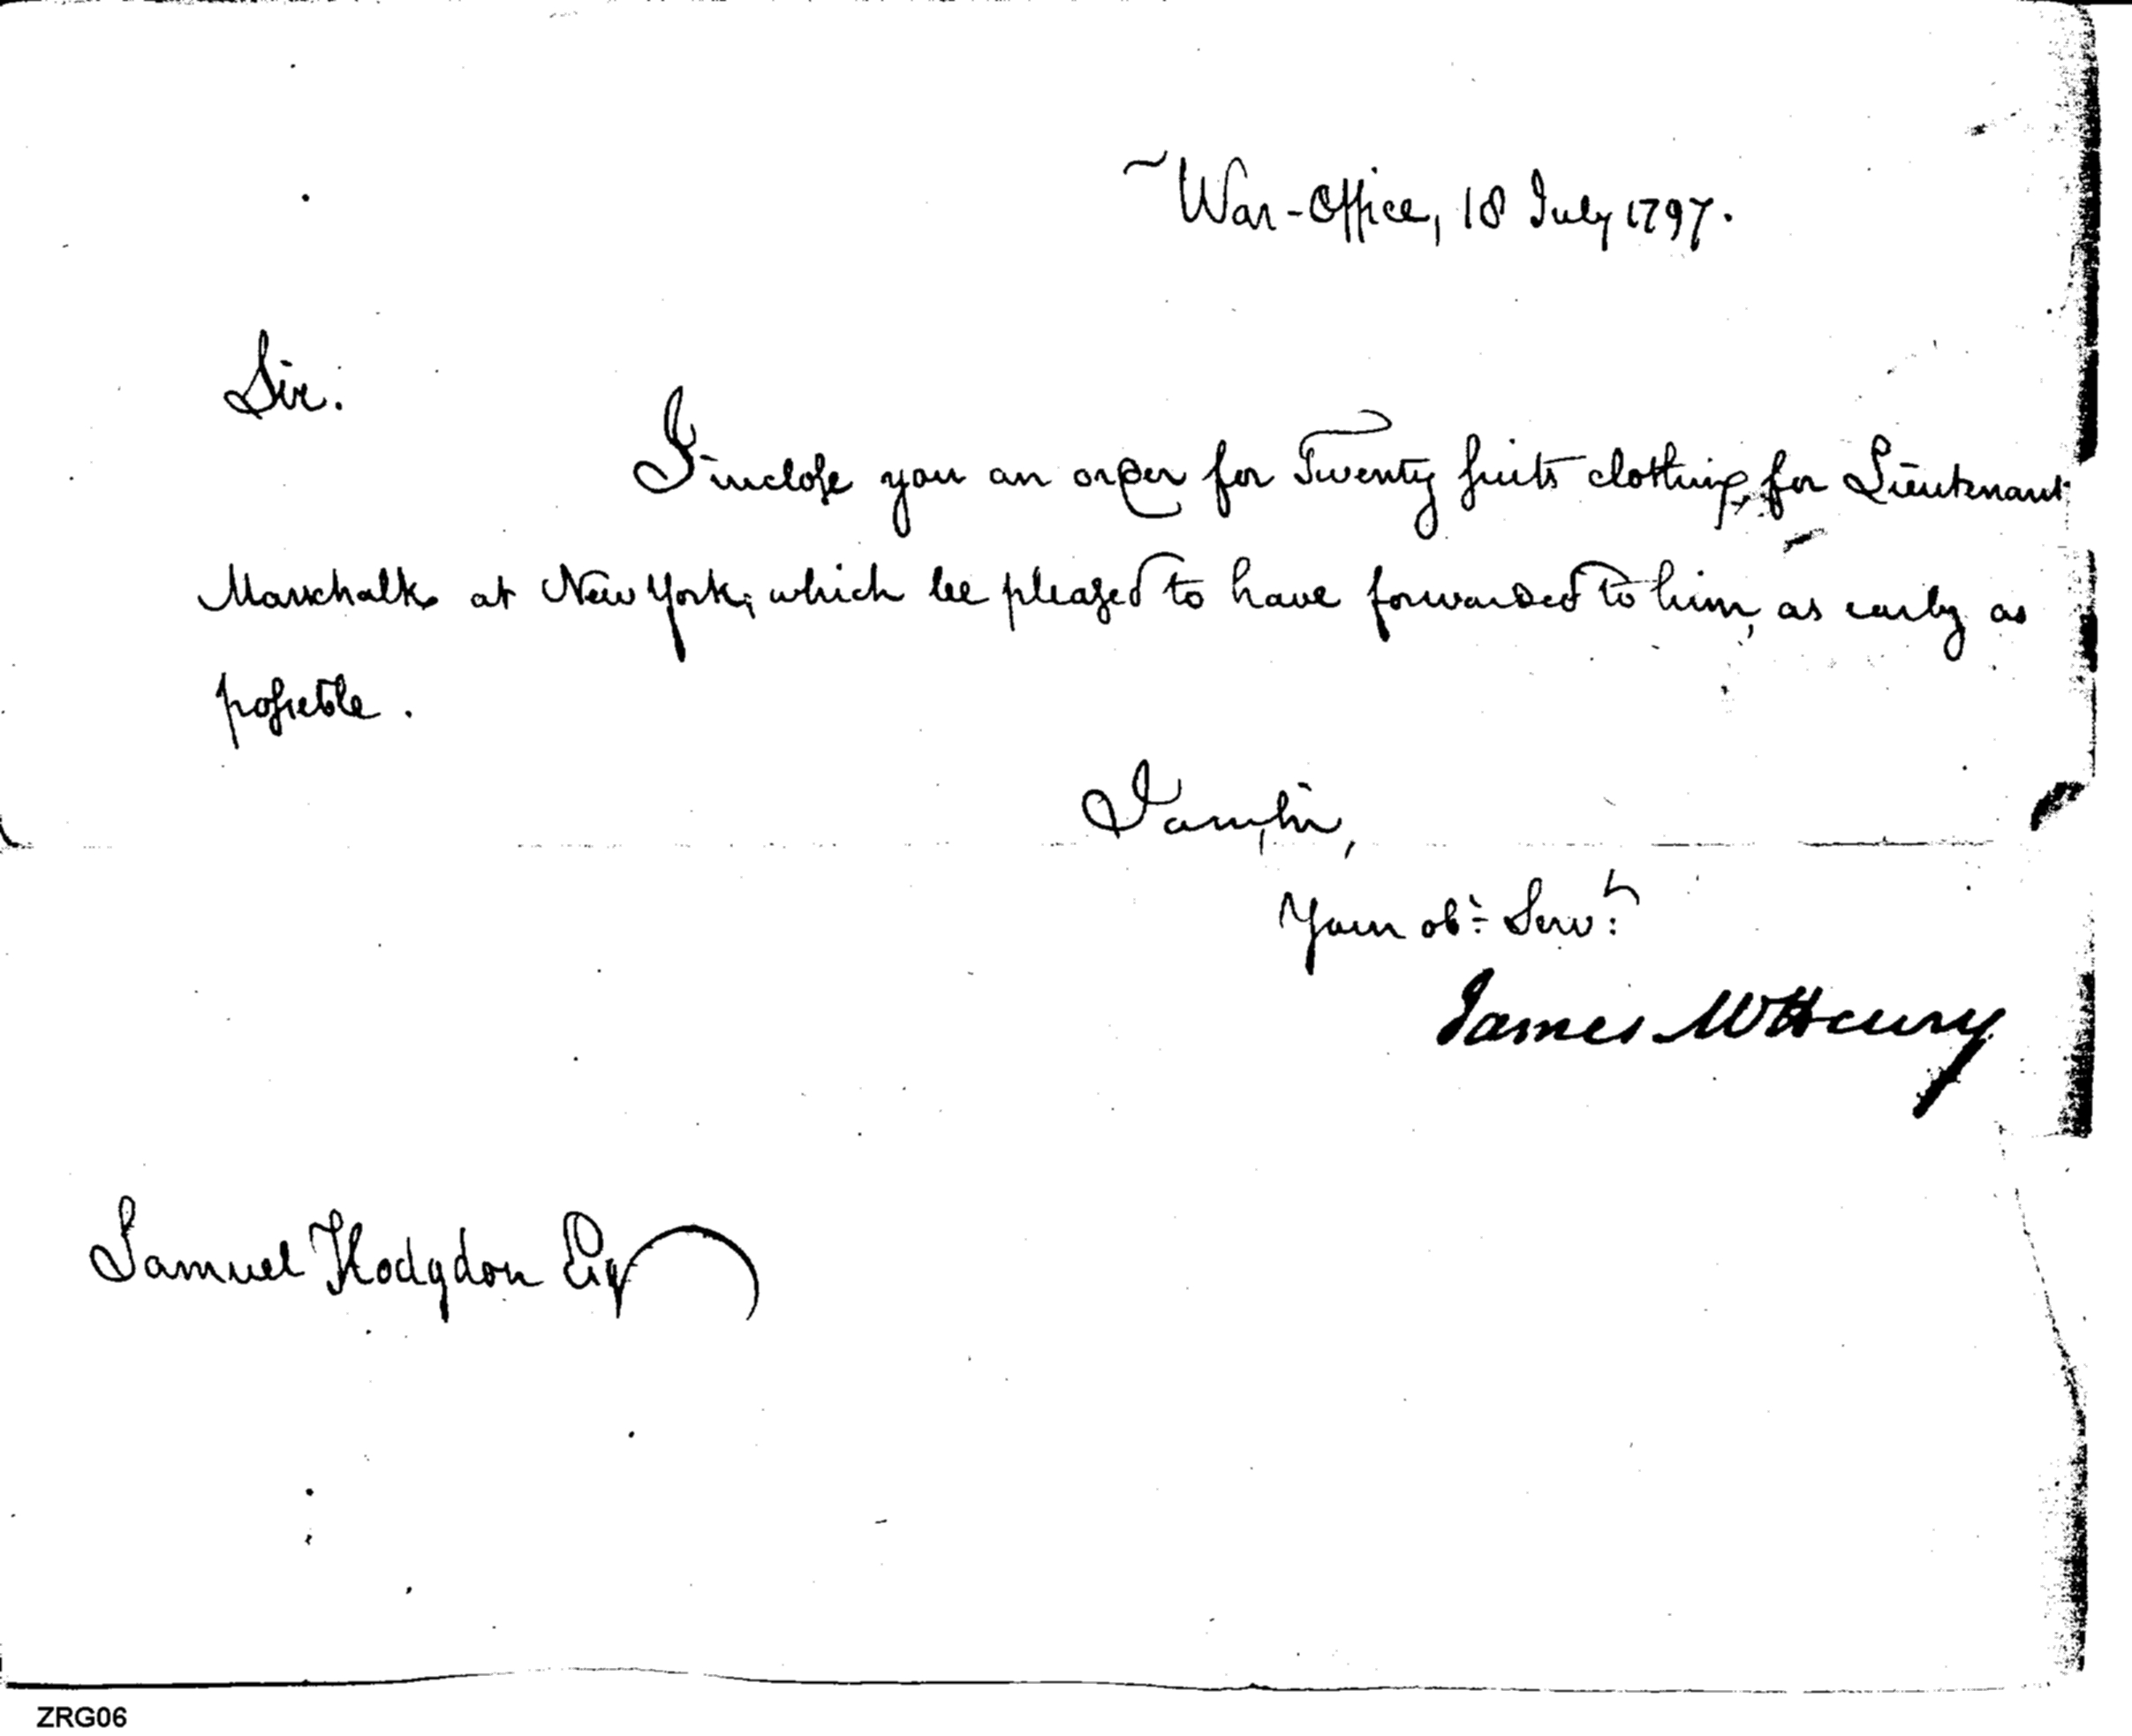 War-Office, 18 July 1797.
Sir.
I inclose you an order for Twenty suits clothing, for Lieutenant
Marschalk at New York; which be pleased to have forwarded to him, as early as
possible.
I am, Sir,
Your obt. Servt.
James McHenry
Samuel Hodgdon Esq
ZRG06